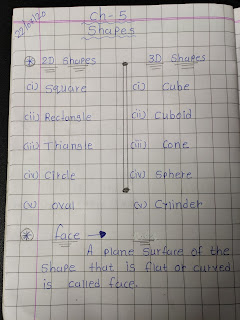 22/04/20
Ch-5
Shapes
2D Shapes 3D Shapes
(i) Square (i) Cube
(ii) Rectangle (ii) Cuboid
(iii) Triangle (iii) Cone
(iv) Circle (iv) Sphere
(v) Oval (v) Cylinder
face →
A plane surface of the
shape that is flat or curved
is called face.